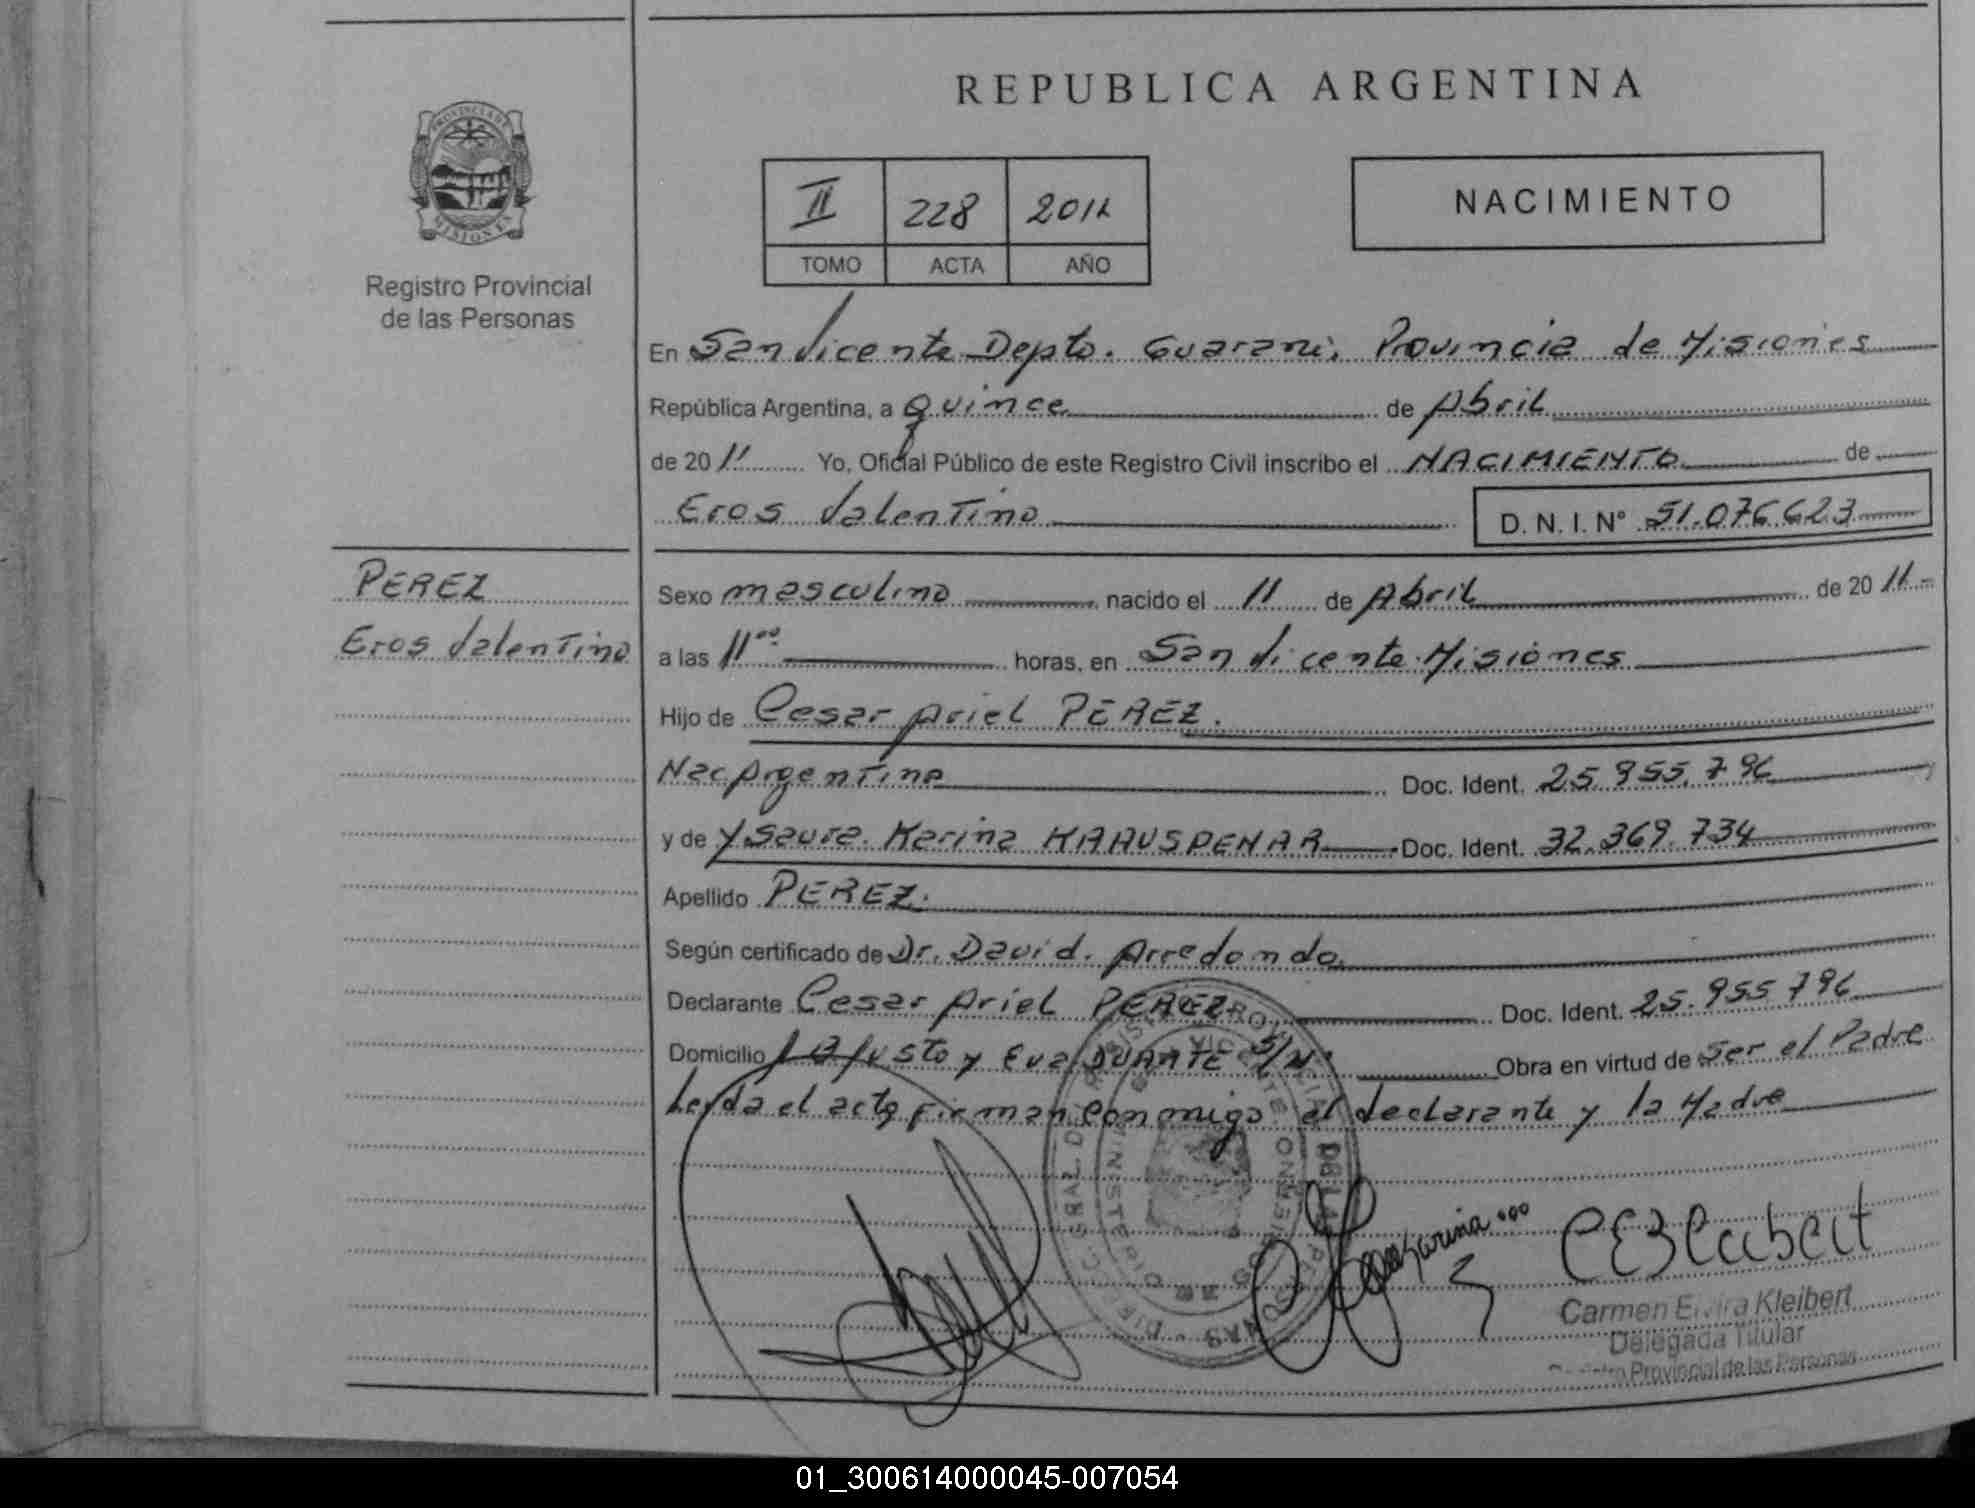 REPUBLICA ARGENTINA
PROVINCIA DE
MISIONES
Registro Provincial
de las Personas
II 228 2011
TOMO ACTA AÑO
NACIMIENTO
En San Vicente Depto. Guarani, Provincia de Misiones
República Argentina, a Quince de Abril
de 2011 Yo, Oficial Público de este Registro Civil inscribo el NACIMIENTO de
Eros Valentino D. N. I. N° 51.076.623
PEREZ
Eros Valentino
Sexo masculino nacido el 11 de Abril de 2011
a las 11⁰⁰ horas, en San Vicente Misiones
Hijo de Cesar Ariel PEREZ.
Nac Argentina Doc. Ident. 25.955.796
y de Ysaura Karina Doc. Ident. 32.369.734
Apellido PEREZ.
Según certificado de Dr. David Arredondo
Declarante Cesar Ariel PEREZ Doc. Ident. 25.955 796
Domicilio Justo y Eva DUARTE S/N. Obra en virtud de Ser el Padre
Leyda el acta firman conmigo el declarante y la Madre
Carmen Elvira Kleibert
Delegada Titular
Registro Provincial de las Personas
01_300614000045-007054